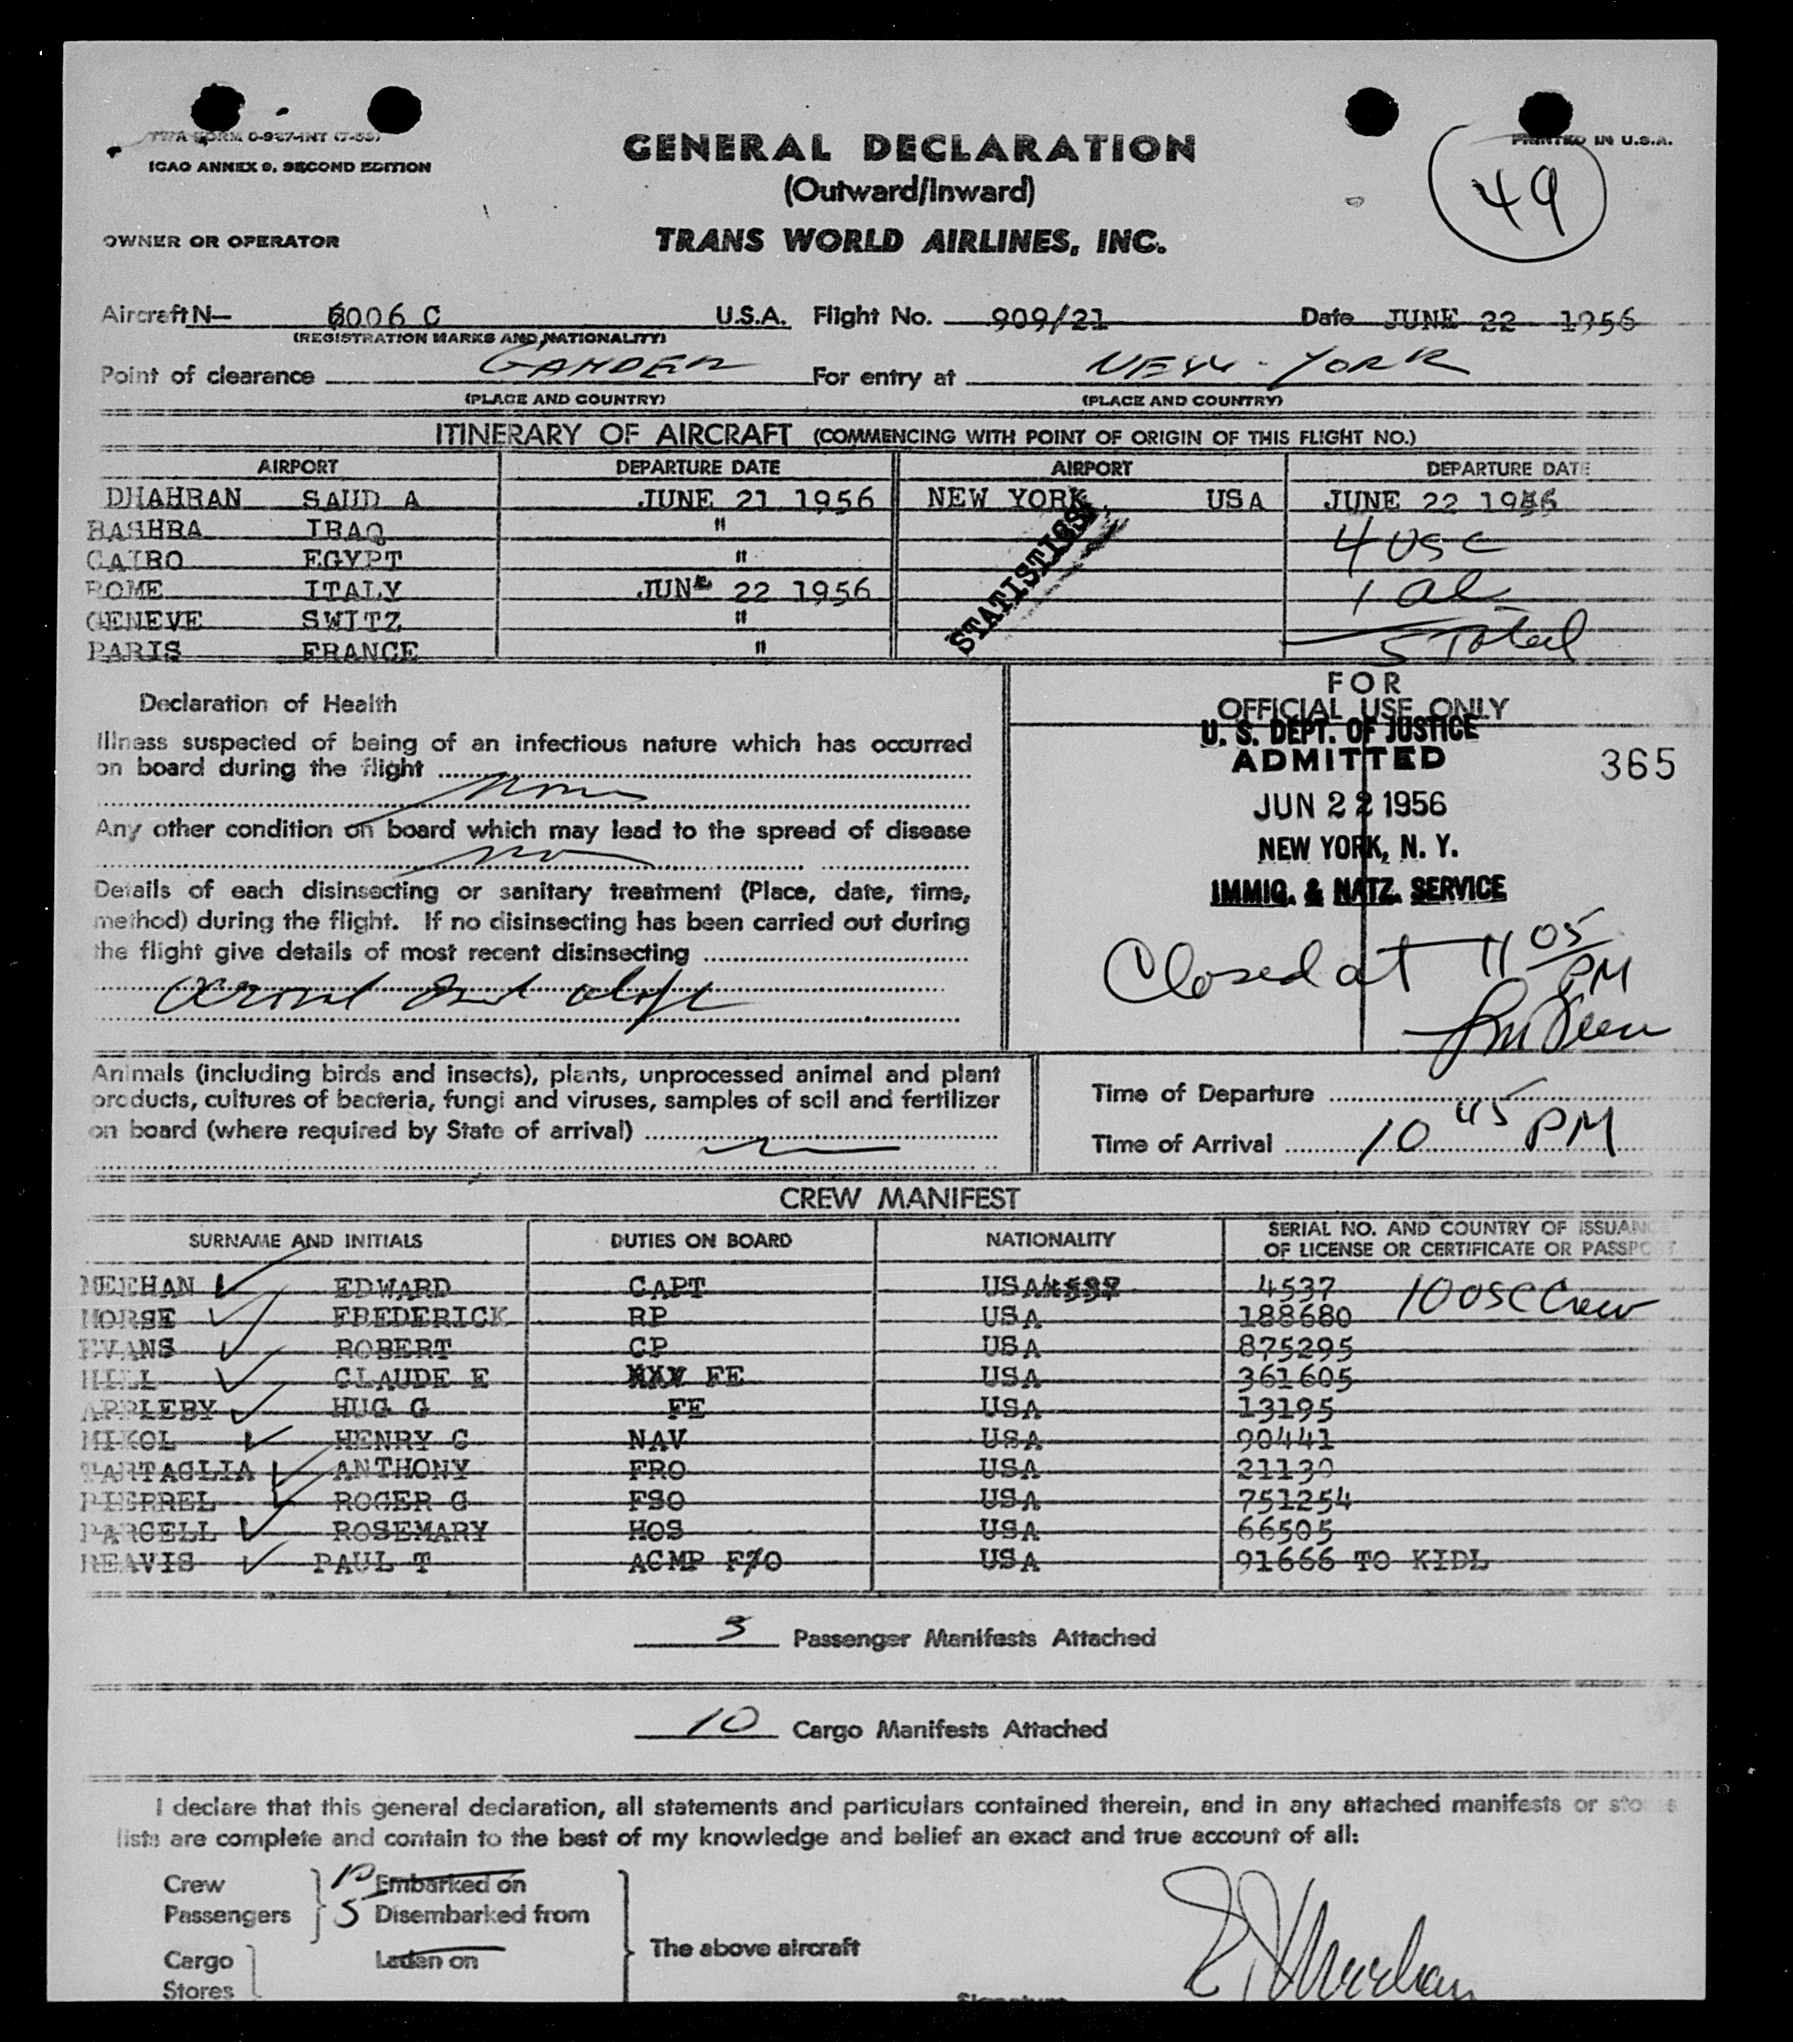 TWA FORM 0-927-INT (7-55)
ICAO ANNEX 9, SECOND EDITION
PRINTED IN U.S.A.
49
GENERAL DECLARATION
(Outward/Inward)
OWNER OR OPERATOR TRANS WORLD AIRLINES, INC.
Aircraft N— 6006 C U.S.A. Flight No. 909/21 Date JUNE 22 1956
(REGISTRATION MARKS AND NATIONALITY)
Point of clearance GANDER For entry at NEW-YORK
(PLACE AND COUNTRY) (PLACE AND COUNTRY)
ITINERARY OF AIRCRAFT (COMMENCING WITH POINT OF ORIGIN OF THIS FLIGHT NO.)
AIRPORT DEPARTURE DATE AIRPORT DEPARTURE DATE
DHAHRAN SAUD A JUNE 21 1956 NEW YORK USA JUNE 22 1956
BASHRA IRAQ " 4 USC
CAIRO EGYPT " STATISTICS
ROME ITALY JUNE 22 1956 1 al
GENEVE SWITZ "
PARIS FRANCE " 5 Total
Declaration of Health
FOR
OFFICIAL USE ONLY
U. S. DEPT. OF JUSTICE
ADMITTED 365
JUN 22 1956
NEW YORK, N. Y.
IMMIG. & NATZ. SERVICE
Closed at 11 05 PM
Illness suspected of being of an infectious nature which has occurred
on board during the flight
None
Any other condition on board which may lead to the spread of disease
no
Details of each disinsecting or sanitary treatment (Place, date, time,
method) during the flight. If no disinsecting has been carried out during
the flight give details of most recent disinsecting
Animals (including birds and insects), plants, unprocessed animal and plant
products, cultures of bacteria, fungi and viruses, samples of soil and fertilizer
on board (where required by State of arrival)
Time of Departure
Time of Arrival 10 45 PM
CREW MANIFEST
SURNAME AND INITIALS DUTIES ON BOARD NATIONALITY SERIAL NO. AND COUNTRY OF ISSUANC
OF LICENSE OR CERTIFICATE OR PASSPO
MEEHAN EDWARD CAPT USA 4537 4537 10 USC Crew
MORSE FREDERICK RP USA 188680
EVANS ROBERT CP USA 875295
HILL CLAUDE E FE USA 361605
APPLEBY HUG G FE USA 13195
MIKOL HENRY C NAV USA 90441
TARTAGLIA ANTHONY FRO USA 21130
PIERREL ROGER G FSO USA 751254
PARCELL ROSEMARY HOS USA 66505
REAVIS PAUL T ACMP F/O USA 91666 TO KIDL
5 Passenger Manifests Attached
10 Cargo Manifests Attached
I declare that this general declaration, all statements and particulars contained therein, and in any attached manifests or stores
lists are complete and contain to the best of my knowledge and belief an exact and true account of all:
Crew 10 Embarked on
Passengers 5 Disembarked from
The above aircraft
Cargo Laden on
Stores
Signature